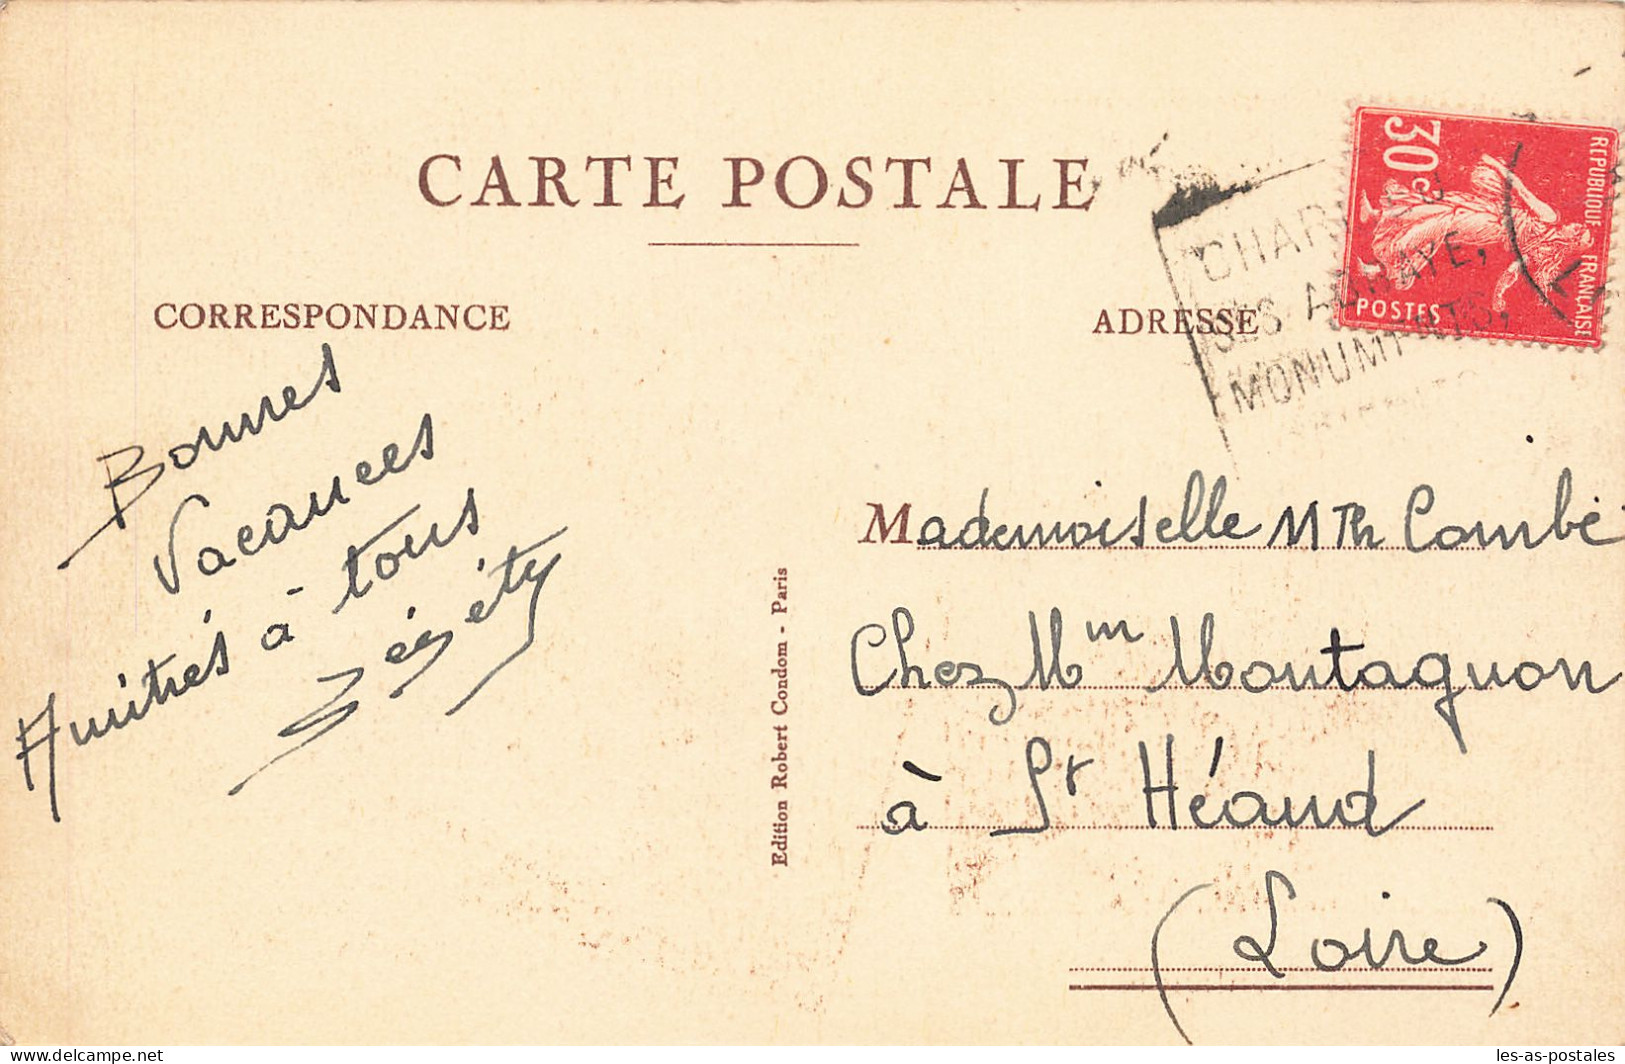 CARTE POSTALE
CORRESPONDANCE
ADRESSE
30c
REPUBLIQUE FRANÇAISE
POSTES
CHARLIEU
SES ABBAYE,
MONUMENTS,
Bonnes
Vacances
Amitiés à tous
Mademoiselle MTh Combe
Chez Mm Montagnon
à St Héand
(Loire)
Edition Robert Condom - Paris
www.delcampe.net
les-as-postales